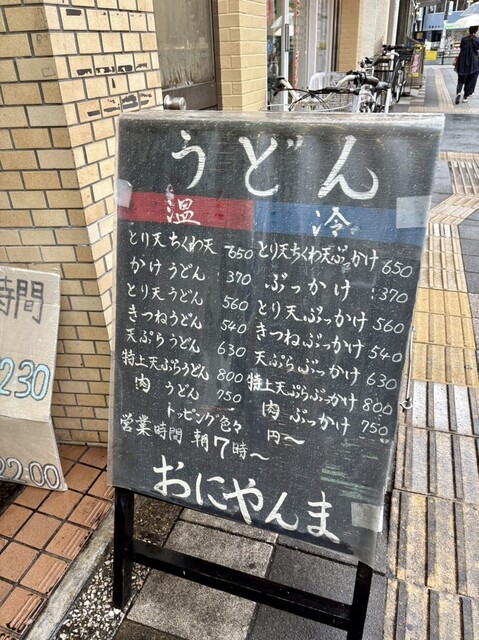 うどん
温 冷
とり天ちくわ天 650 とり天ちくわ天ぶっかけ 650
かけうどん 370 ぶっかけ 370
とり天うどん 560 とり天ぶっかけ 560
きつねうどん 540 きつねぶっかけ 540
天ぷらうどん 630 天ぷらぶっかけ 630
特上天ぷらうどん 800 特上天ぷらぶっかけ 800
肉うどん 750 肉ぶっかけ 750
トッピング色々 円〜
営業時間 朝7時〜
おにやんま
時間
22:00